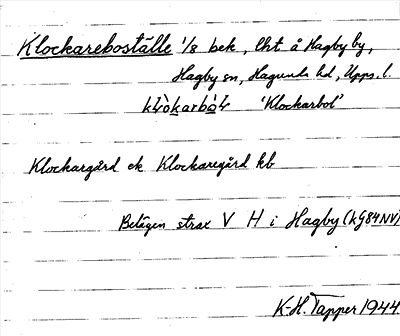 Klockareboställe 1/8 bek, lht å Hagby by,
Hagby sn, Hagunda hd, Upps. l.
'Klockarbol'
Klockargård ek Klockaregård kb
Belägen strax V H i Hagby (kG84NV)
K-H. Tapper 1944